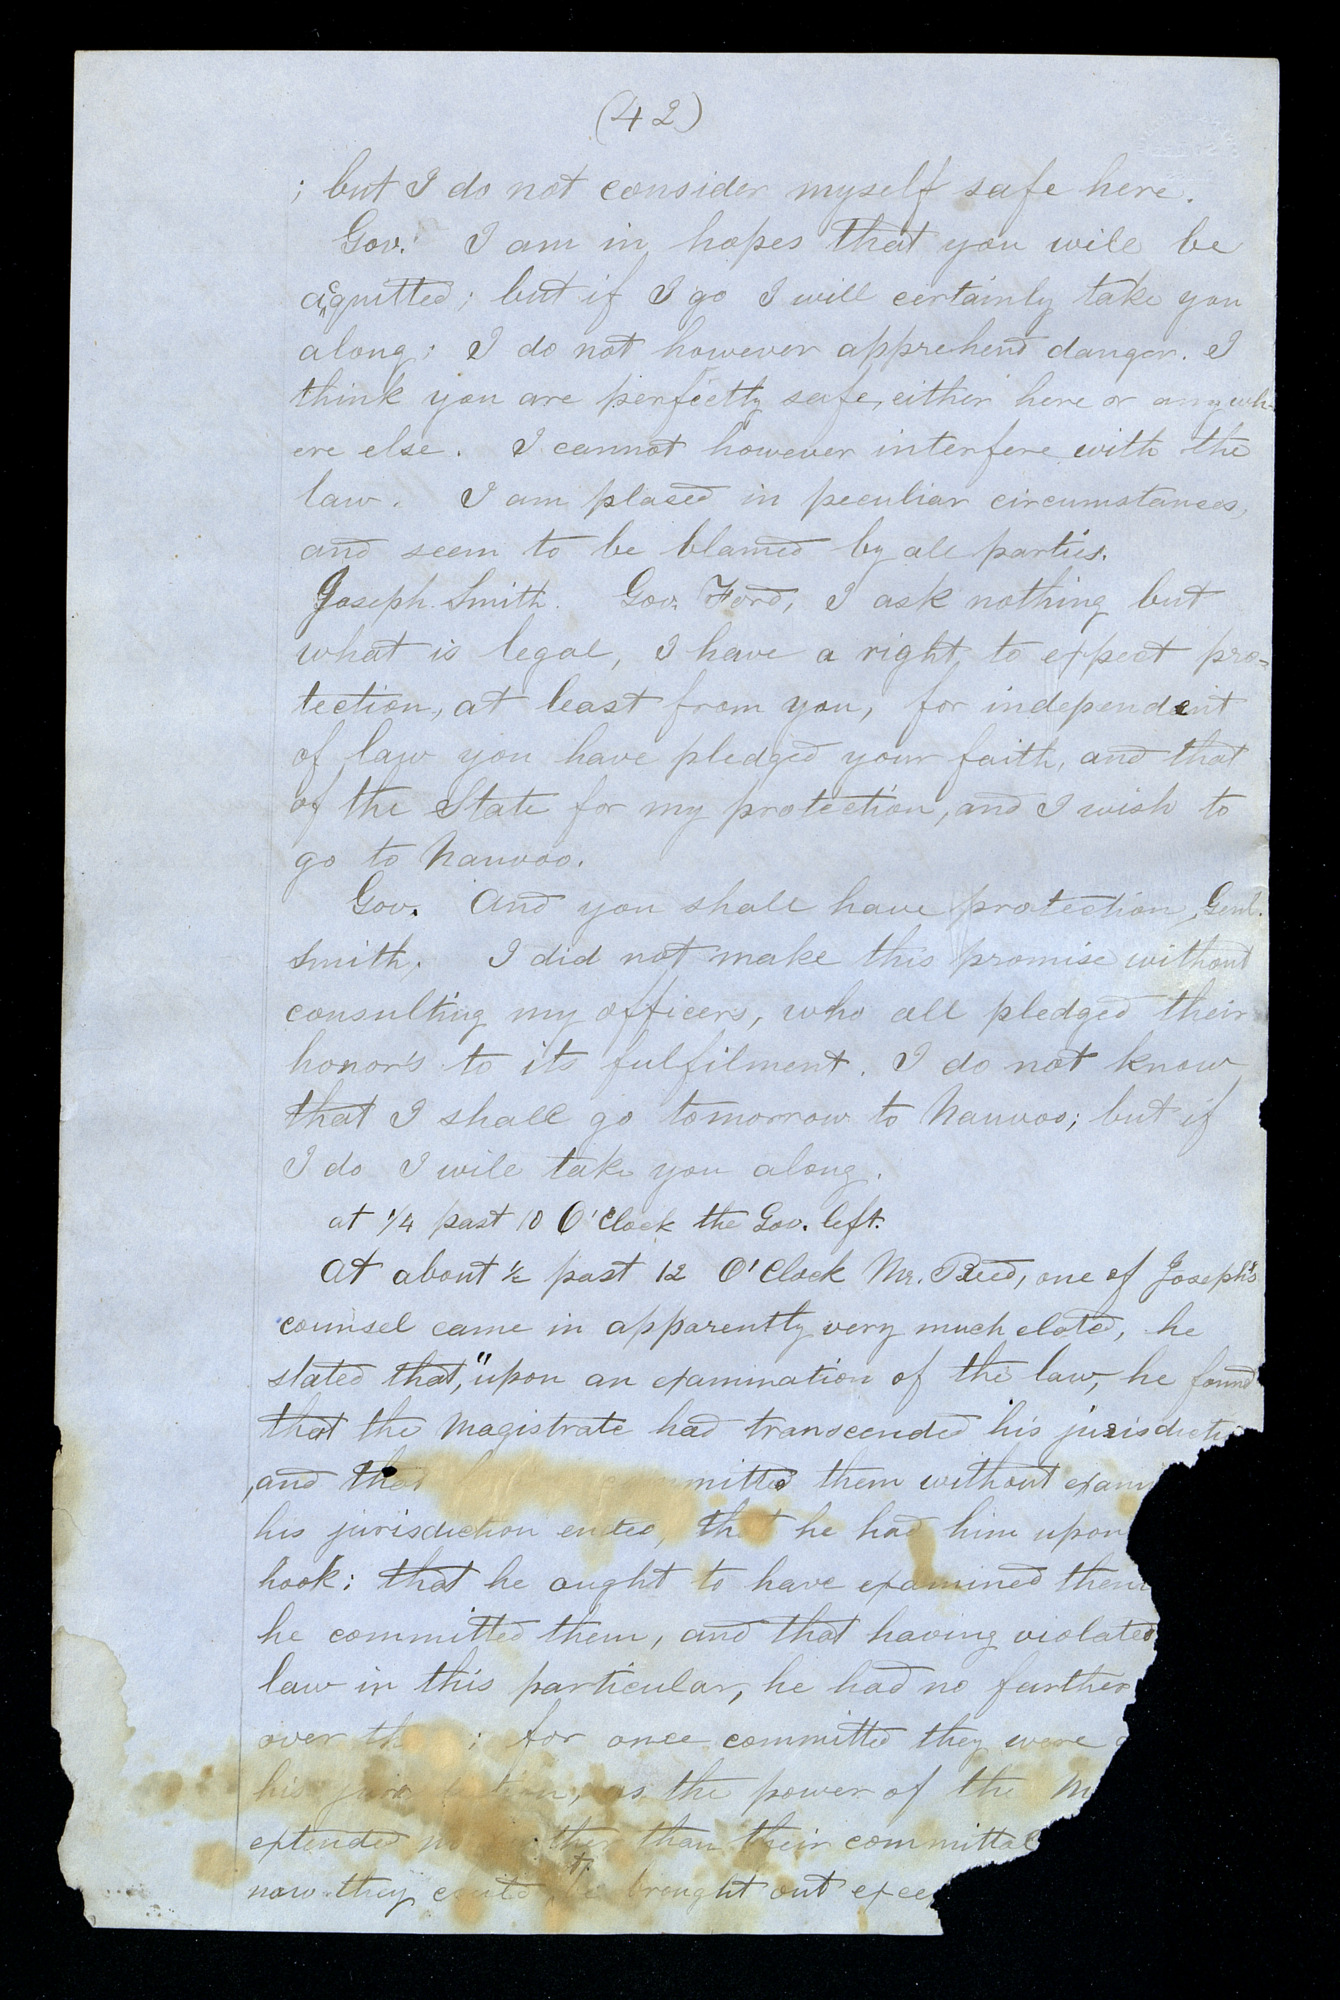 (42)
; but I do not consider myself safe here.
Gov. I am in hopes that you will be
acquitted; but if I go I will certainly take you
along; I do not however apprehend danger. I
think you are perfectly safe, either here or anywh-
ere else. I cannot however interfere with the
law. I am plased in peculiar circumstances,
and seem to be blamed by all parties.
Joseph Smith. Gov. Ford, I ask nothing but
what is legal, I have a right to expect pro=
tection, at least from you, for independent
of law you have pledged your faith, and that
of the State for my protection, and I wish to
go to Nauvoo.
Gov. And you shall have protection, Genl.
Smith. I did not make this promise without
consulting my officers, who all pledged their
honor's to its fulfilment. I do not know
that I shall go tomorrow to Nauvoo; but if
I do I will take you along.
at 1/4 past 10 O'Clock the Gov. left.
At about 1/2 past 12 O'Clock Mr. Reed, one of Joseph's
counsel came in apparently very much elated, he
stated that, "upon an examination of the law, he found
that the Magistrate had transcended his jurisdicti
, and that mitted them without exam
his jurisdiction ended, that he had him upon
hook; that he ought to have examined them
he committed them, and that having violated
law in this particular, he had no further
over th ; for once committed they were
his juris iction, as the power of the M
extended no ther than their committal
now they could be brought out exce